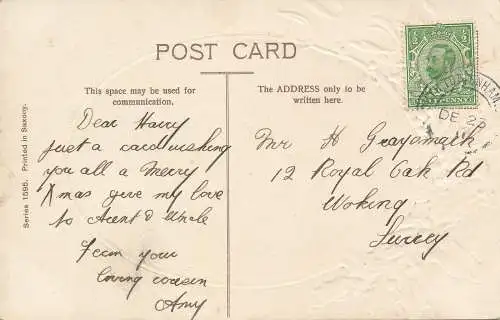 POST CARD
This space may be used for
communication.
The ADDRESS only to be
written here.
Dear Harry
Just a card wishing
you all a Merry
Xmas give my love
to Aunt & Uncle
From your
loving cousin
Amy
Mr H
12 Royal Oak Rd
Woking
Surrey
Series 1595. Printed in Saxony.
DE 2